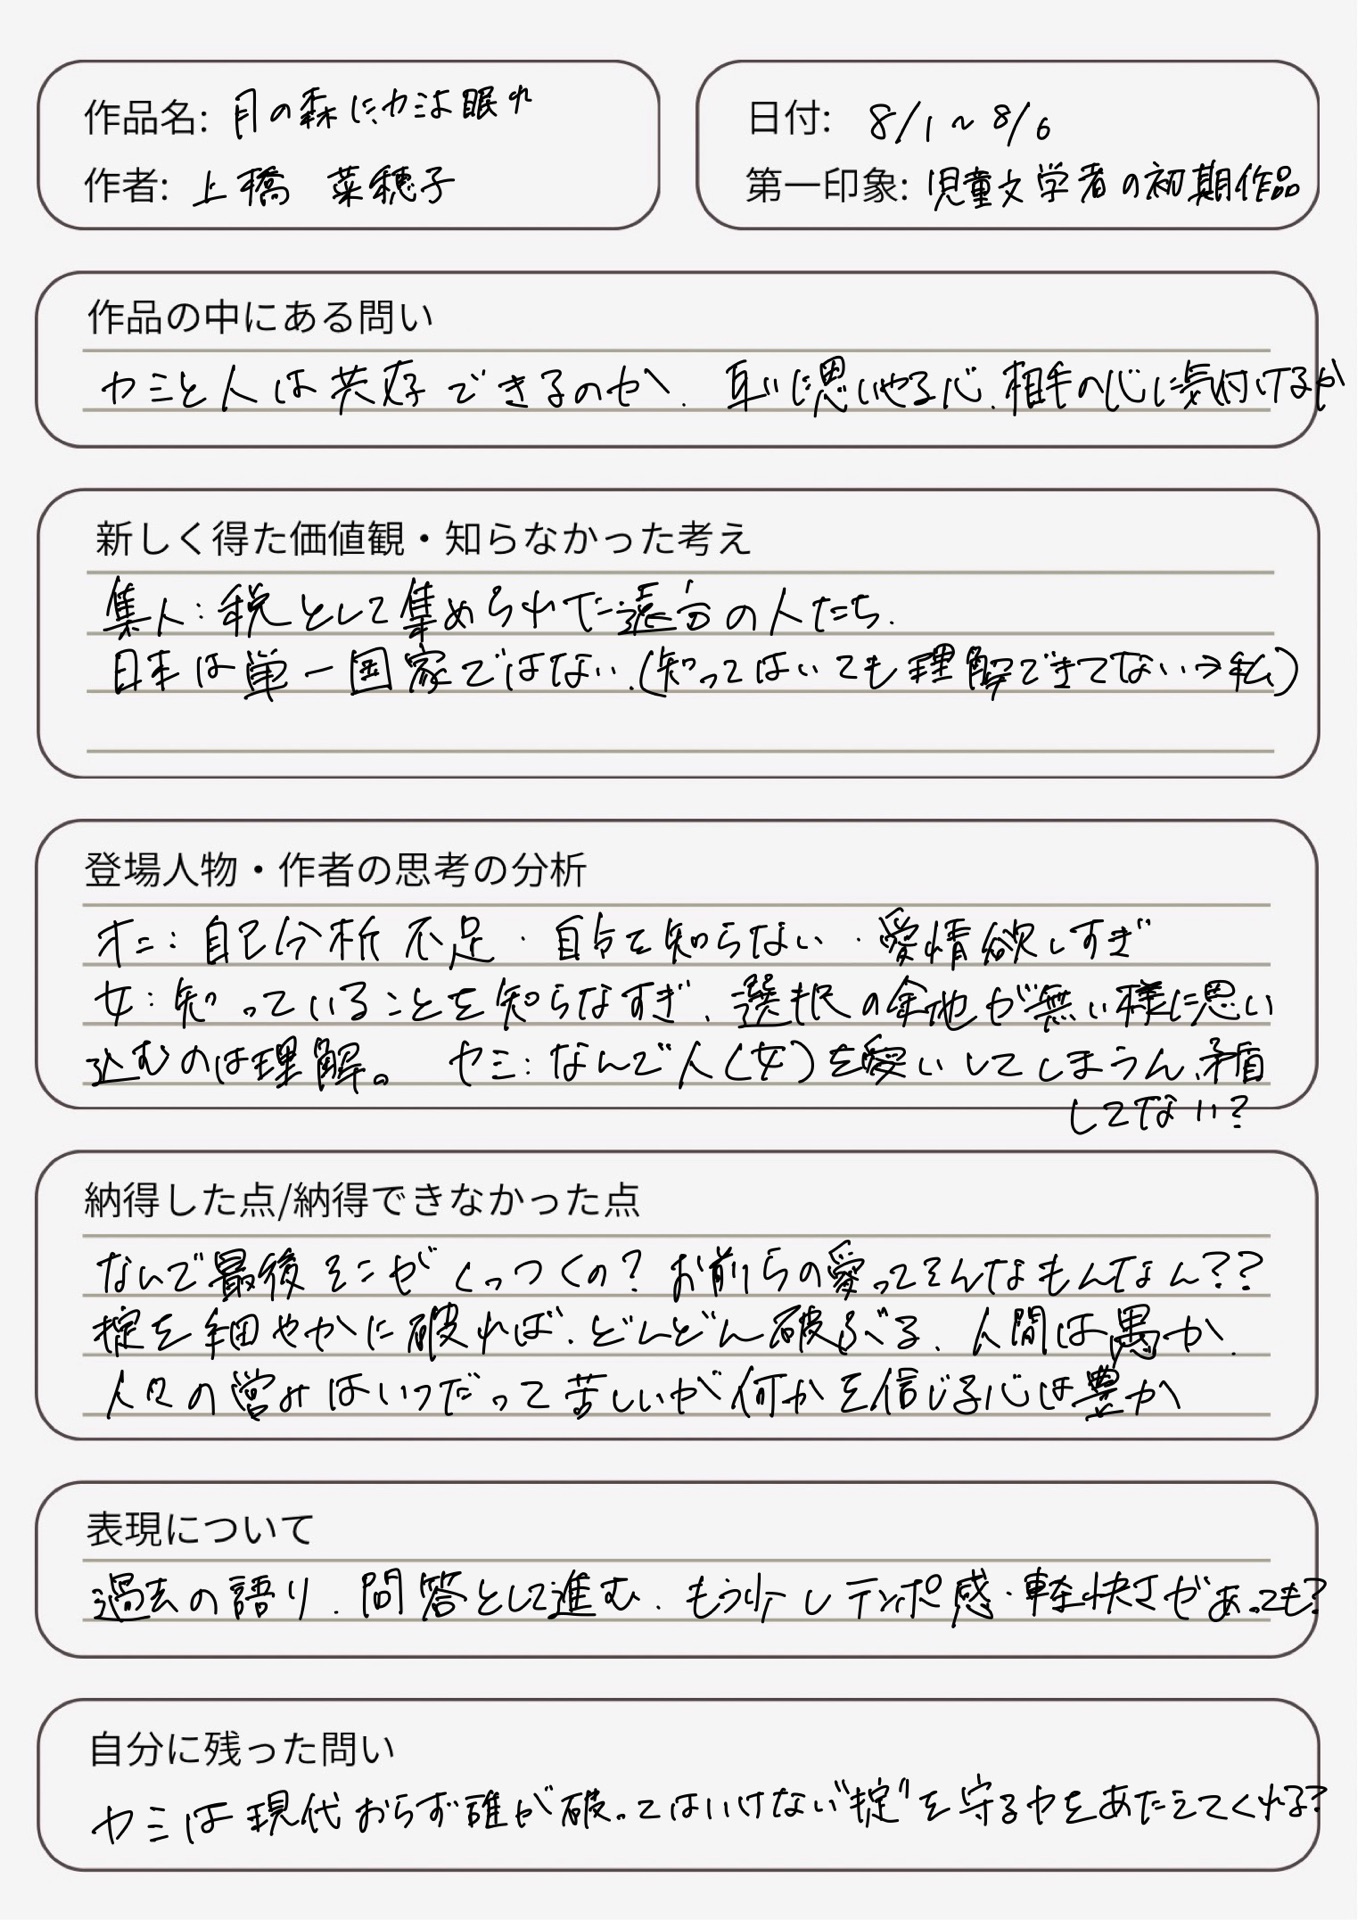 作品名: 月の森にカミは眠れ
作者: 上橋 菜穂子
日付: 8/1~8/6
第一印象: 児童文学者の初期作品
作品の中にある問い
カミと人は共存できるのか. 互いに思いやる心、相手の心に気付けるか
新しく得た価値観・知らなかった考え
集人: 税として集められてた遠方の人たち.
日本は単一国家ではない.(知ってはいても理解できてない→私)
登場人物・作者の思考の分析
オニ: 自己分析不足・自らを知らない・愛情欲しすぎ
女: 知っていることを知らなすぎ、選択の余地が無い様に思い
込むのは理解。 カミ: なんで人(女)を愛いしてしまうん、矛盾
してない?
納得した点/納得できなかった点
なんで最後そこがくっつくの? お前らの愛ってそんなもんなん??
掟を細やかに破れば、どんどん破ぶる、人間は愚か.
人々の営みはいつだって苦しいが何かを信じる心は豊か
表現について
過去の語り. 問答として進む. もう少しテンポ感・軽快さがあっても?
自分に残った問い
カミは現代おらず誰が破ってはいけない"掟"を守る力をあたえてくれる?